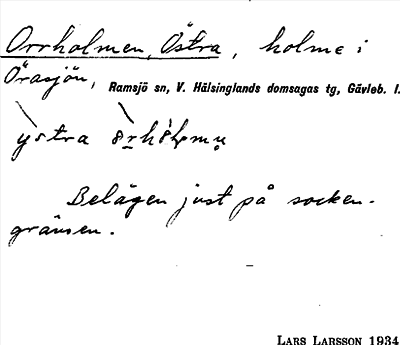 Orrholmen, Östra, holme i
Örasjön, Ramsjö sn, V. Hälsinglands domsagas tg, Gävleb. l.
ystra
Belägen just på socken-
gränsen.
LARS LARSSON 1934